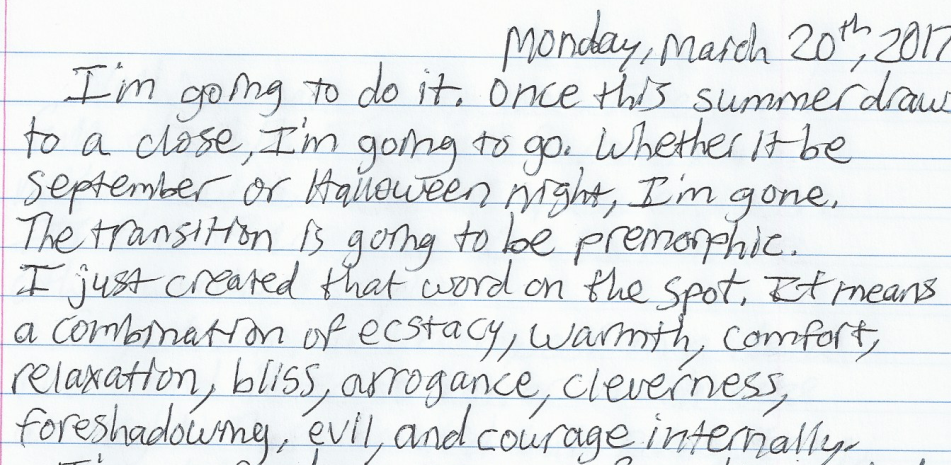 Monday, March 20th, 2017
I'm going to do it. Once this summer draw
to a close, I'm going to go. Whether it be
September or Halloween night, I'm gone.
The transition is going to be premorphic.
I just created that word on the spot. It means
a combination of ecstacy, warmth, comfort,
relaxation, bliss, arrogance, cleverness,
foreshadowing, evil, and courage internally.